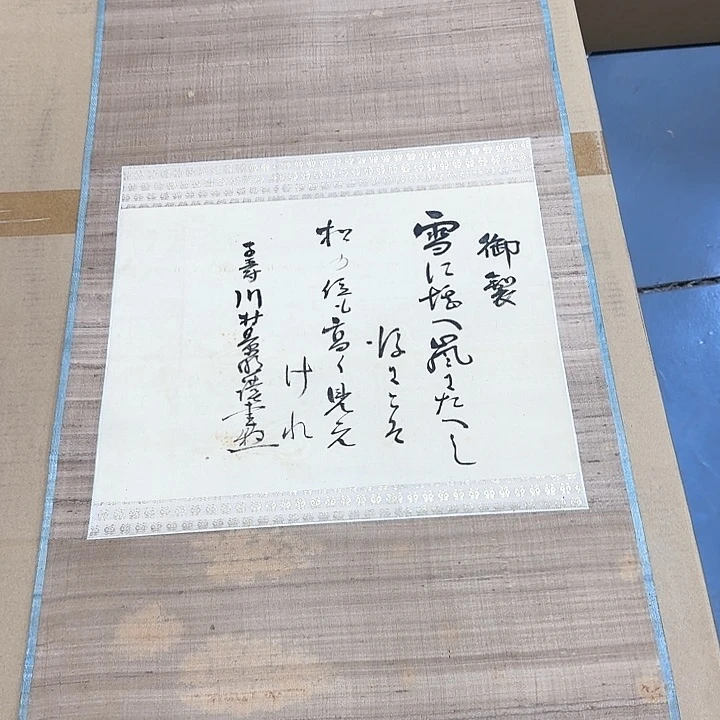 御製
雪に堪へ嵐にたへし
後にこそ
松の位も高く見え
けれ
川村景明謹書